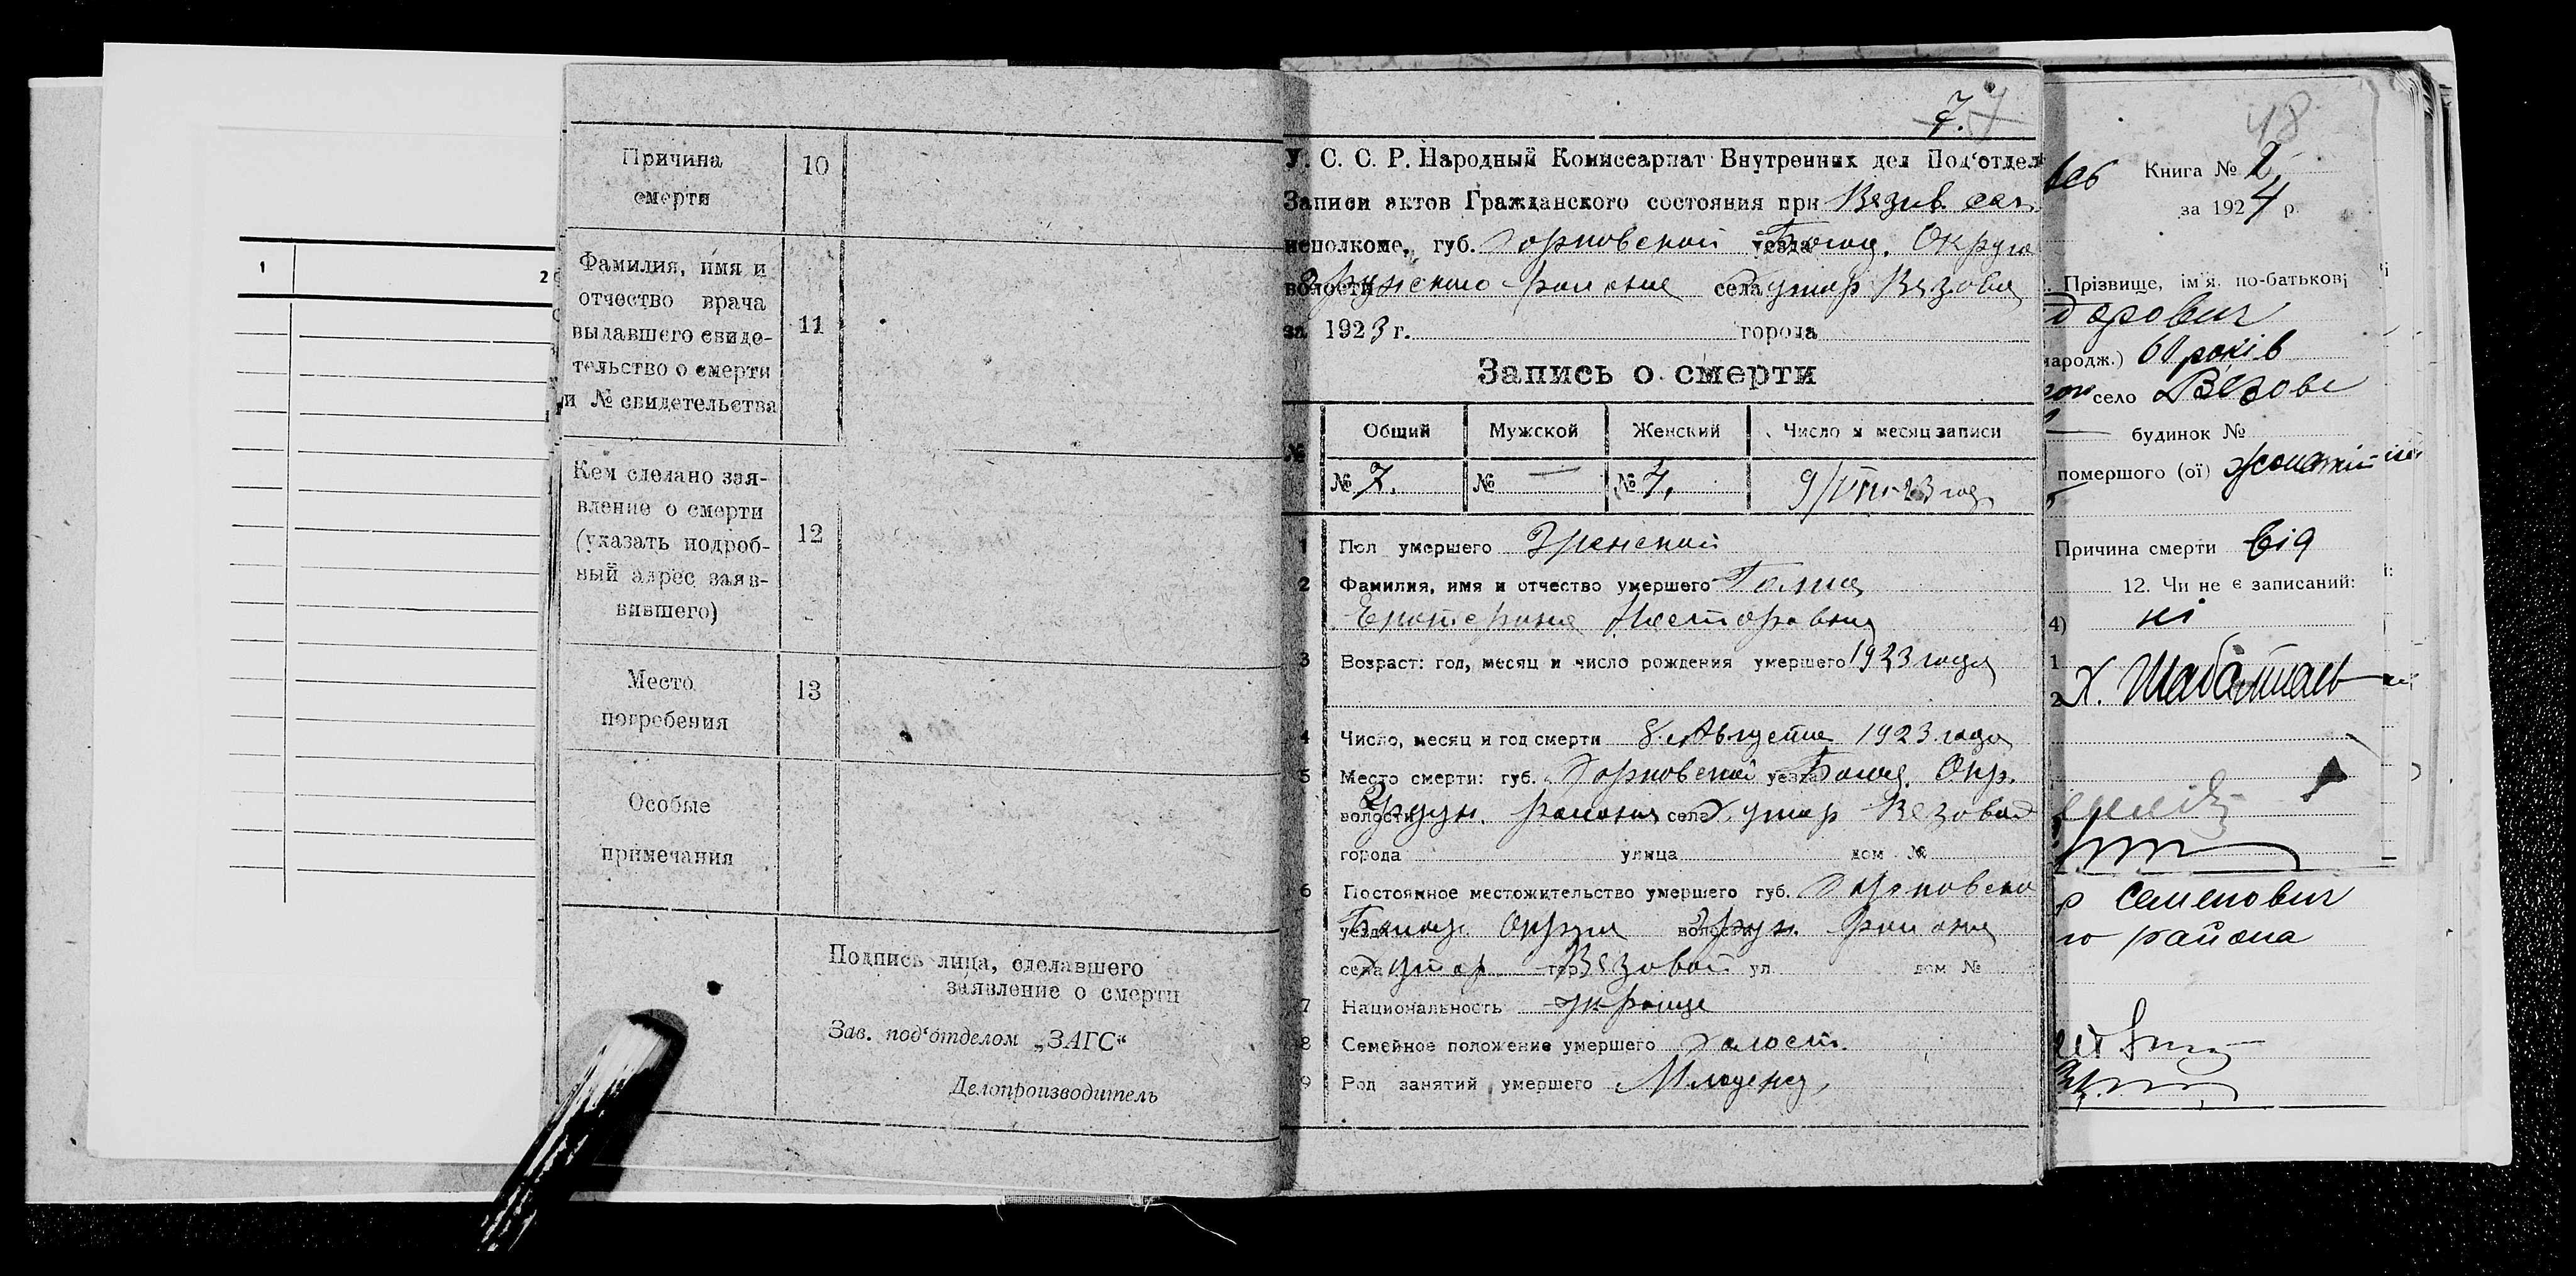 1
2
Причина
смерти
10
Фамилия, имя и
отчество врача
выдавшего свиде-
тельство о смерти
и № свидетельства
11
Кем сделано зая-
вление о смерти
(указать подроб-
ный адрес заяв-
вившего)
12
Место
погребения
13
Особые
примечания
Подпись лица, сделавшего
заявление о смерти
Зав. под‘отделом „ЗАГС“
Делопроизводитель
7.
У. С. С. Р. Народный Комиссариат Внутренних дел Под‘отдел
Записи актов Гражданского состояния при Вязов. сел.
исполкоме, губ. Харковской уезда Богод. Округа
волости района села хутор Вязовой
за 1923 г. города
Запись о смерти
№ Общий Мужской Женский Число и месяц записи
№ 7. № — № 4. 9/VIII-23 год
1 Пол умершего Женский
2 Фамилия, имя и отчество умершего
Екатерина Несторовна
3 Возраст: год, месяц и число рождения умершего 1923 года
4 Число, месяц и год смерти 8 Августа 1923 года
5 Место смерти: губ. Харковской уезда Богод. Окр.
волости района села хутор Вязовой
города улица дом №
6 Постоянное местожительство умершего губ. Харковской
уезда Богод. Округа волости района
села хутор гор. Вязовой ул. дом №
7 Национальность украинц
8 Семейное положение умершего холост.
9 Род занятий умершего Младенец
48
Книга № 2
за 1924 р.
Прізвище, ім‘я, по-батькові
дорович
народж.) 60 років
село Вязове
— будинок №
помершого (ої)
Причина смерти від
12. Чи не є записаний:
4) ні
1
2 Х.
Семенович
го района